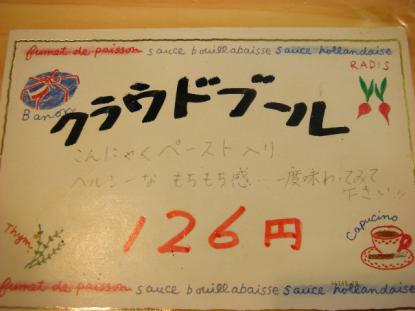 fumet de paisson sauce bouillabaisse sauce hollandaise
RADIS
Banon
クラウドブール
こんにゃくペースト入り
ヘルシーな もちもち感…一度味わってみて
下さい!!
Thym
Capucino
126円
fumet de paisson sauce bouillabaisse sauce hollandaise